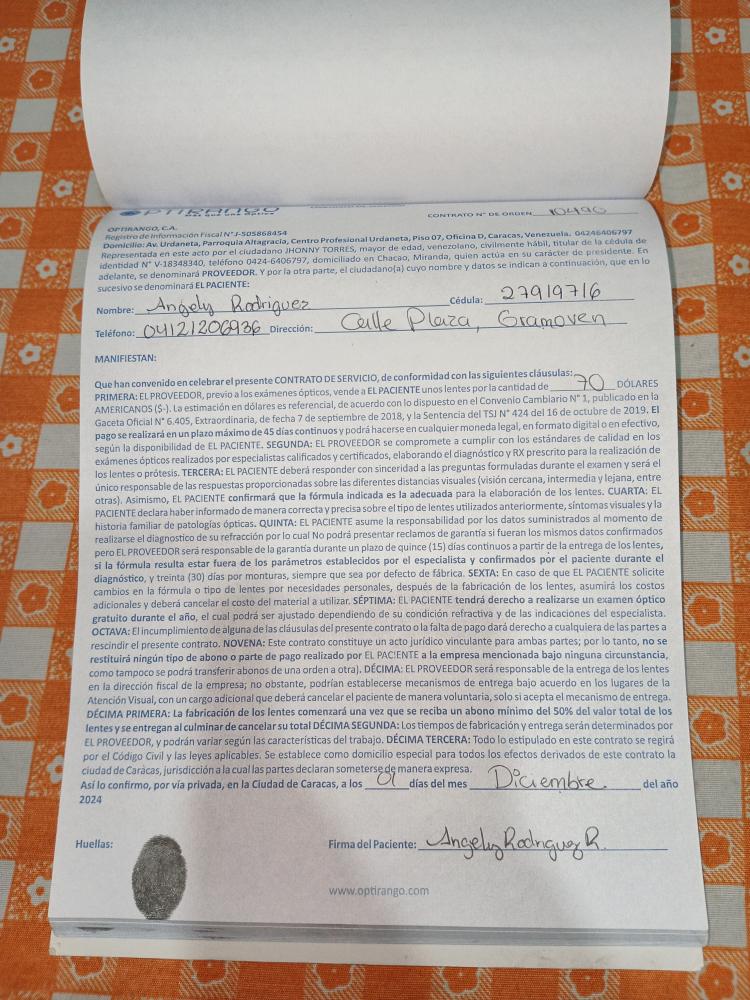 OPTIRANGO
CONTRATO N° DE ORDEN 10490
OPTIRANGO, C.A.
Registro de Información Fiscal N° J-505868454
Domicilio: Av. Urdaneta, Parroquia Altagracia, Centro Profesional Urdaneta, Piso 07, Oficina D, Caracas, Venezuela. 04246406797
Representada en este acto por el ciudadano JHONNY TORRES, mayor de edad, venezolano, civilmente hábil, titular de la cédula de
identidad N° V-18348340, teléfono 0424-6406797, domiciliado en Chacao, Miranda, quien actúa en su carácter de presidente. En
adelante, se denominará PROVEEDOR. Y por la otra parte, el ciudadano(a) cuyo nombre y datos se indican a continuación, que en lo
sucesivo se denominará EL PACIENTE:
Nombre: Angely Rodriguez Cédula: 27919716
Teléfono: 04121206936 Dirección: Calle Plaza, Gramoven
MANIFIESTAN:
Que han convenido en celebrar el presente CONTRATO DE SERVICIO, de conformidad con las siguientes cláusulas:
PRIMERA: EL PROVEEDOR, previo a los exámenes ópticos, vende a EL PACIENTE unos lentes por la cantidad de 70 DÓLARES
AMERICANOS ($-). La estimación en dólares es referencial, de acuerdo con lo dispuesto en el Convenio Cambiario N° 1, publicado en la
Gaceta Oficial N° 6.405, Extraordinaria, de fecha 7 de septiembre de 2018, y la Sentencia del TSJ N° 424 del 16 de octubre de 2019. El
pago se realizará en un plazo máximo de 45 días continuos y podrá hacerse en cualquier moneda legal, en formato digital o en efectivo,
según la disponibilidad de EL PACIENTE. SEGUNDA: EL PROVEEDOR se compromete a cumplir con los estándares de calidad en los
exámenes ópticos realizados por especialistas calificados y certificados, elaborando el diagnóstico y RX prescrito para la realización de
los lentes o prótesis. TERCERA: EL PACIENTE deberá responder con sinceridad a las preguntas formuladas durante el examen y será el
único responsable de las respuestas proporcionadas sobre las diferentes distancias visuales (visión cercana, intermedia y lejana, entre
otras). Asimismo, EL PACIENTE confirmará que la fórmula indicada es la adecuada para la elaboración de los lentes. CUARTA: EL
PACIENTE declara haber informado de manera correcta y precisa sobre el tipo de lentes utilizados anteriormente, síntomas visuales y la
historia familiar de patologías ópticas. QUINTA: EL PACIENTE asume la responsabilidad por los datos suministrados al momento de
realizarse el diagnostico de su refracción por lo cual No podrá presentar reclamos de garantía si fueran los mismos datos confirmados
pero EL PROVEEDOR será responsable de la garantía durante un plazo de quince (15) días continuos a partir de la entrega de los lentes,
si la fórmula resulta estar fuera de los parámetros establecidos por el especialista y confirmados por el paciente durante el
diagnóstico, y treinta (30) días por monturas, siempre que sea por defecto de fábrica. SEXTA: En caso de que EL PACIENTE solicite
cambios en la fórmula o tipo de lentes por necesidades personales, después de la fabricación de los lentes, asumirá los costos
adicionales y deberá cancelar el costo del material a utilizar. SÉPTIMA: EL PACIENTE tendrá derecho a realizarse un examen óptico
gratuito durante el año, el cual podrá ser ajustado dependiendo de su condición refractiva y de las indicaciones del especialista.
OCTAVA: El incumplimiento de alguna de las cláusulas del presente contrato o la falta de pago dará derecho a cualquiera de las partes a
rescindir el presente contrato. NOVENA: Este contrato constituye un acto jurídico vinculante para ambas partes; por lo tanto, no se
restituirá ningún tipo de abono o parte de pago realizado por EL PACIENTE a la empresa mencionada bajo ninguna circunstancia,
como tampoco se podrá transferir abonos de una orden a otra). DÉCIMA: EL PROVEEDOR será responsable de la entrega de los lentes
en la dirección fiscal de la empresa; no obstante, podrían establecerse mecanismos de entrega bajo acuerdo en los lugares de la
Atención Visual, con un cargo adicional que deberá cancelar el paciente de manera voluntaria, solo si acepta el mecanismo de entrega.
DÉCIMA PRIMERA: La fabricación de los lentes comenzará una vez que se reciba un abono mínimo del 50% del valor total de los
lentes y se entregan al culminar de cancelar su total DÉCIMA SEGUNDA: Los tiempos de fabricación y entrega serán determinados por
EL PROVEEDOR, y podrán variar según las características del trabajo. DÉCIMA TERCERA: Todo lo estipulado en este contrato se regirá
por el Código Civil y las leyes aplicables. Se establece como domicilio especial para todos los efectos derivados de este contrato la
ciudad de Caracas, jurisdicción a la cual las partes declaran someterse de manera expresa.
Así lo confirmo, por vía privada, en la Ciudad de Caracas, a los días del mes Diciembre. del año
2024
Huellas:
Firma del Paciente: Angely Rodriguez R.
www.optirango.com